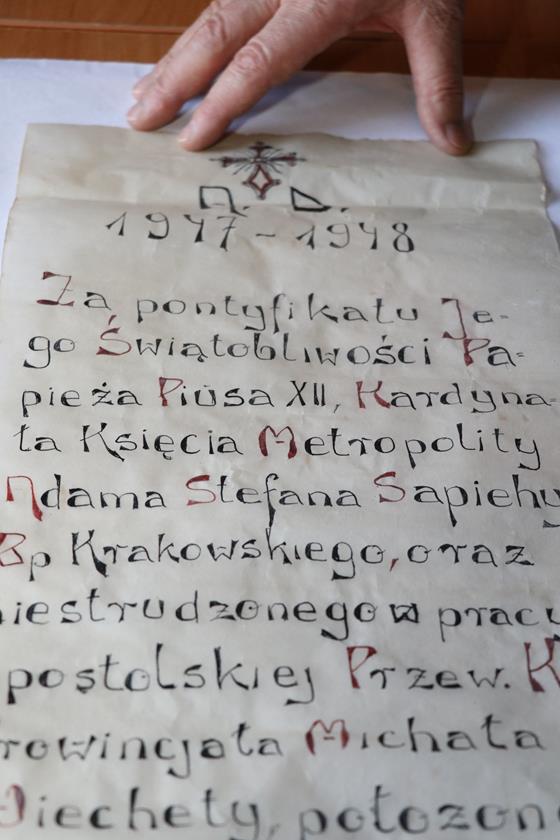 A. D.
1947-1948
Za pontyfikatu Je-
go Świątobliwości Pa-
pieża Piusa XII, Kardyna-
ła Księcia Metropolity
Adama Stefana Sapiehy
Bp Krakowskiego, oraz
niestrudzonego w pracy
postolskiej Przew. K
rowincjała Michała
położon